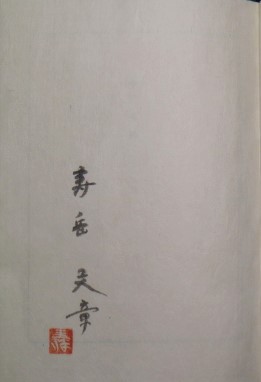 寿岳文章